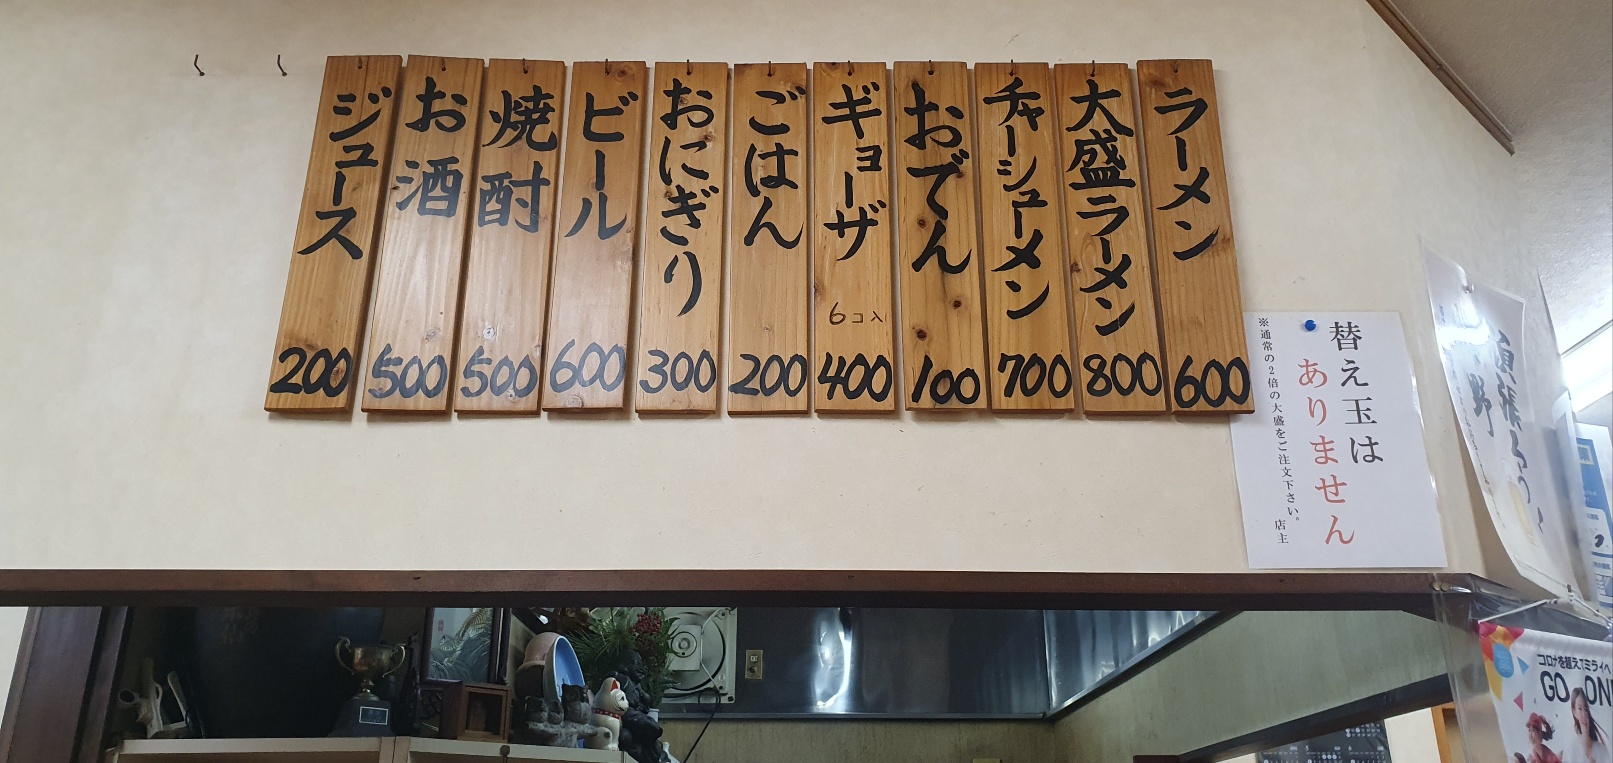 ラーメン
600
大盛ラーメン
800
チャーシューメン
700
おでん
100
ギョーザ
6コ入
400
ごはん
200
おにぎり
300
ビール
600
焼酎
500
お酒
500
ジュース
200
替え玉は
ありません
※通常の2倍の大盛をご注文下さい。
店主
コロナを超えてミライへ
GO